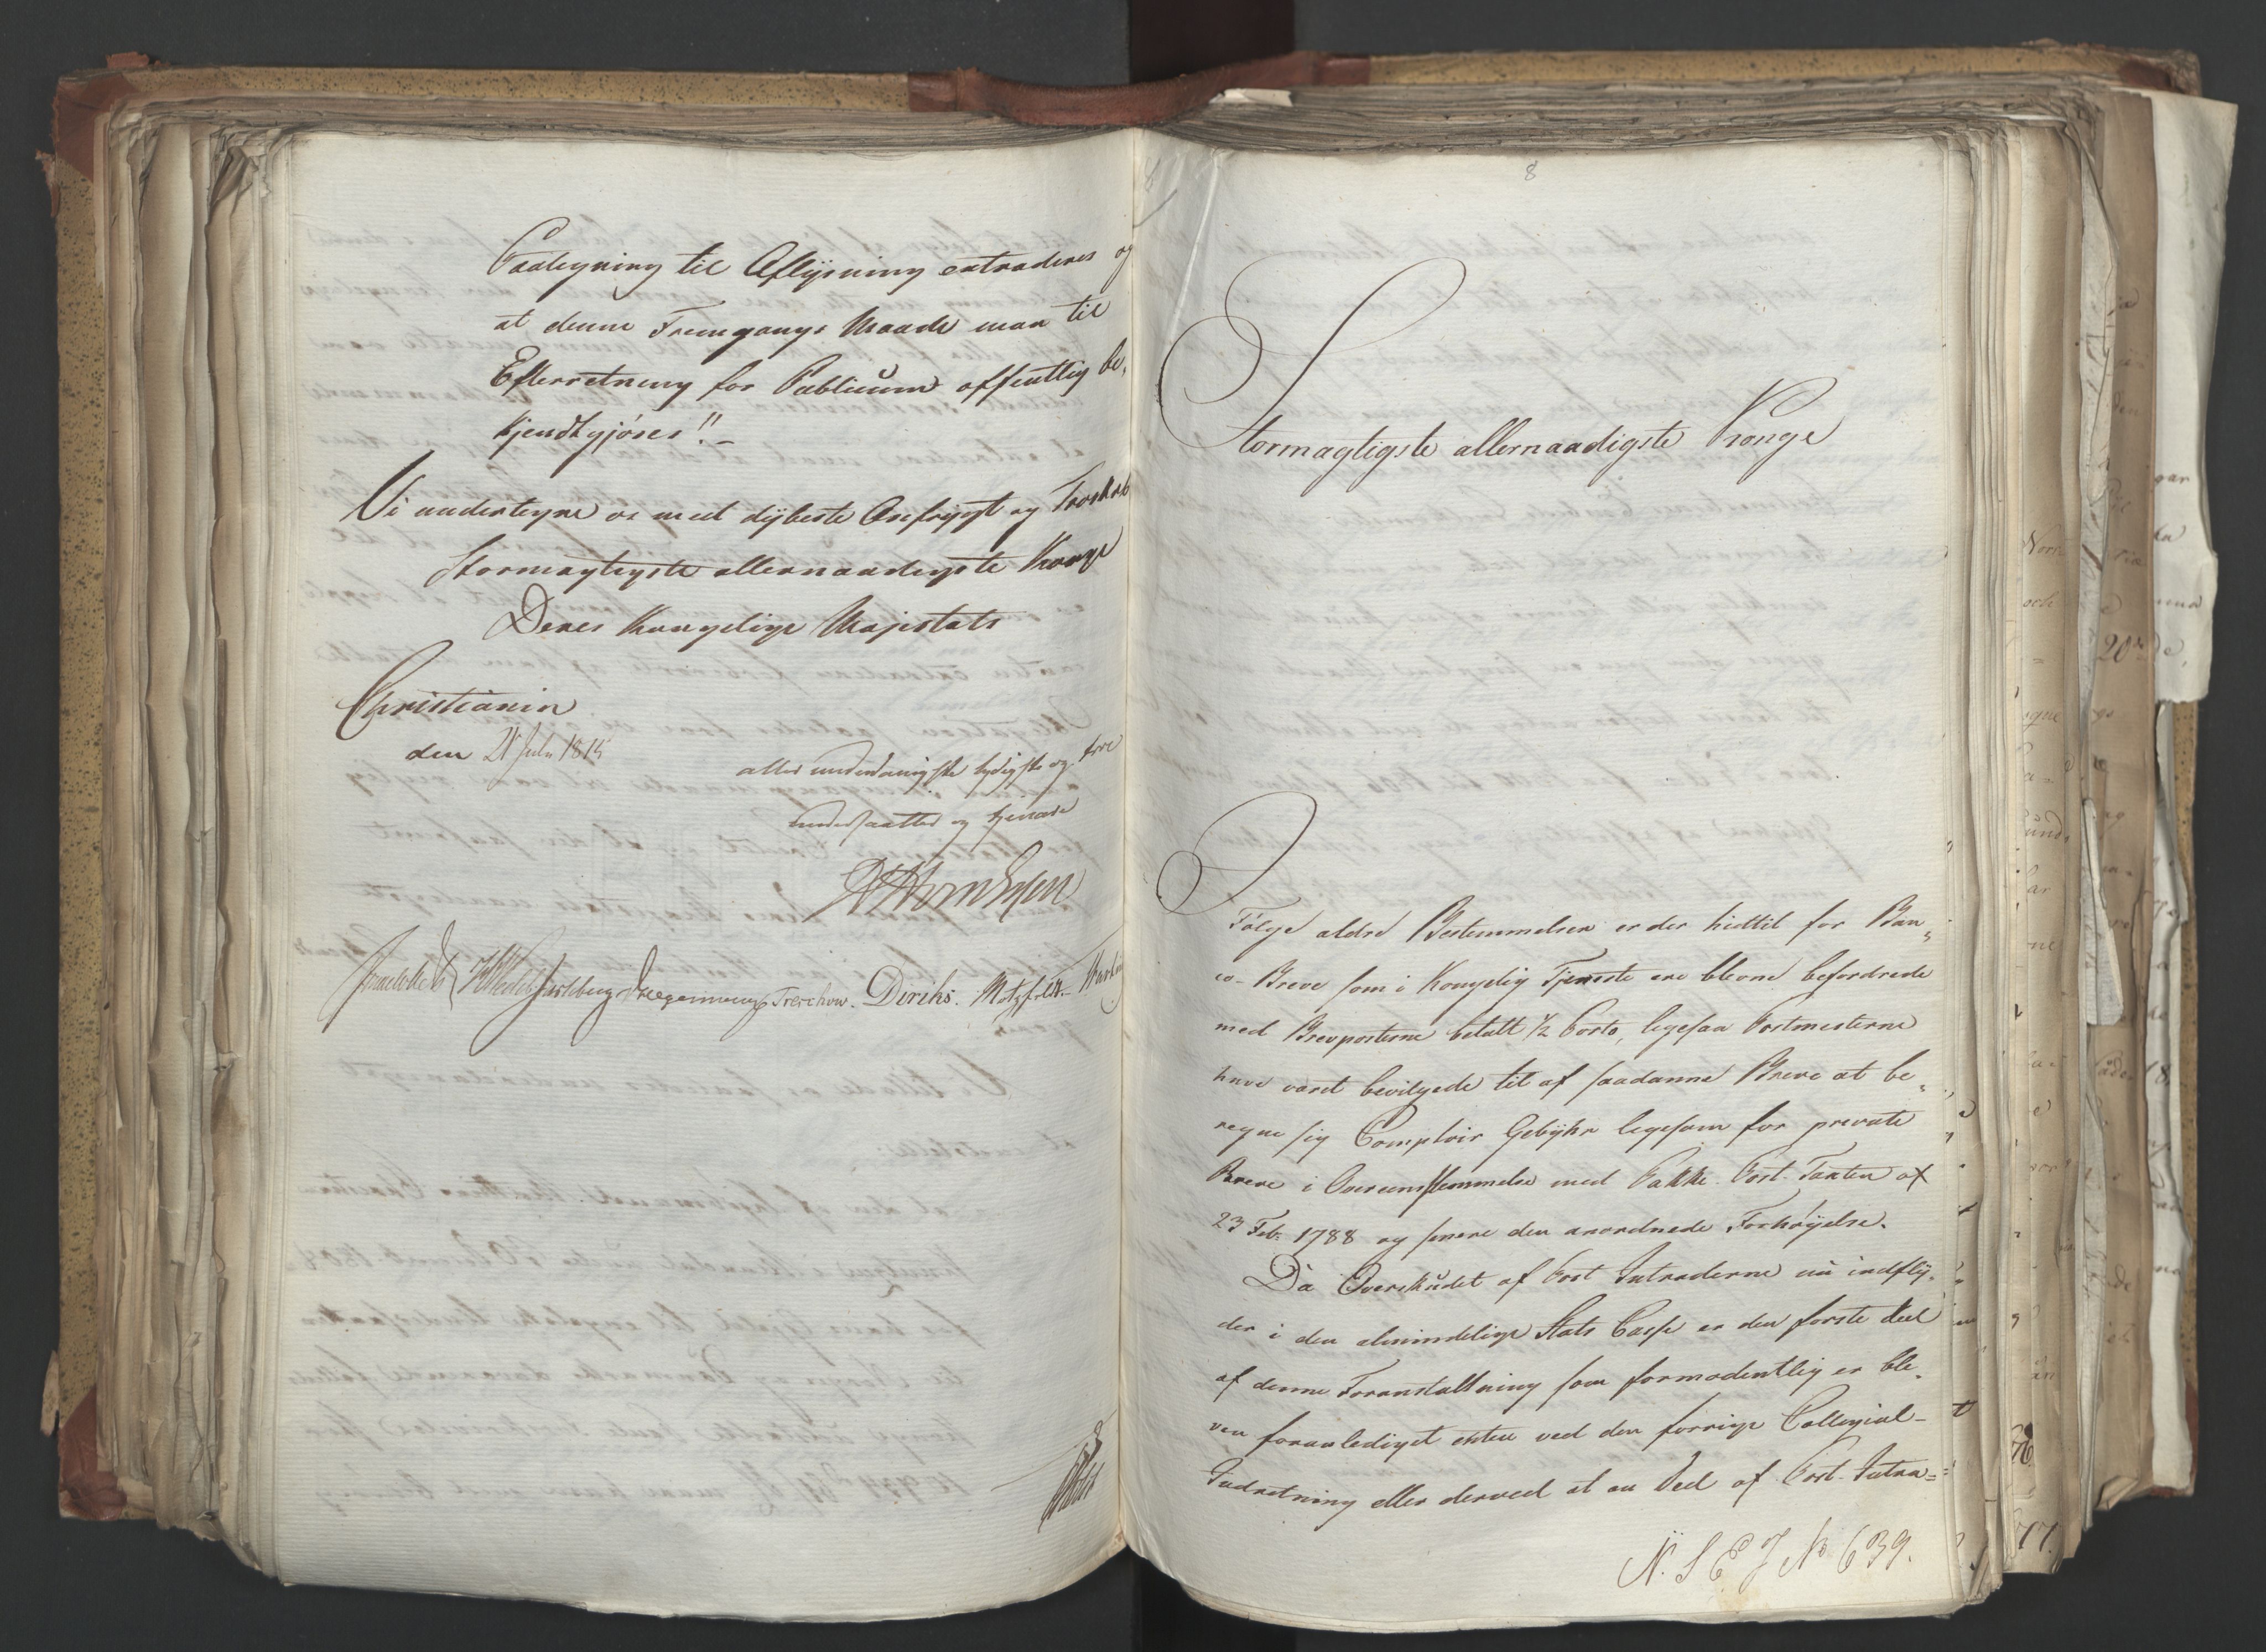 Paategning til Aflÿsning extraderes og
at denne Fremgangs Maade maa til
Efterretning for Publicum offentlig be,
kjendtgjöres!!_
Vi undertegne os med dÿbeste Ærefrÿgt og Troskab
Stormægtigste allernaadigste Konge
Deres Kongelige Majestæts
Christiania
den 21 July 1815
aller underdanigste lydigste og troe
undersaatter og tjenere
Diriks. Motzfeldt.
Treschow.
8
Stormægtigste allernaadigste Konge
I
Fölge ældre Bestemmelser er der hidtil for Ban„
co-Breve som i Kongelig Tjeneste ere blevne befordrede
med Brevposterne betalt ½ Porto, ligesaa Postmesterne
have været bevilgede til af saadanne Breve at be„
regne sig Comptoir Gebÿhr ligesom for private
Breve i Overeensstemmelse med Pakke-Post-Taxten af
23 Feb. 1788 og senere den anordnede Forhöÿelse.
Da Overskudet af Post Intraderne nu indflÿ„
der i den almindelige Stats Casse er den første Deel
af denne Foranstaltning som formodentlig er ble„
ven foranlediget enten ved den forrige Collegial-
Indretning eller derved at en Deel af Post-Intra=
N. S E J No 639.